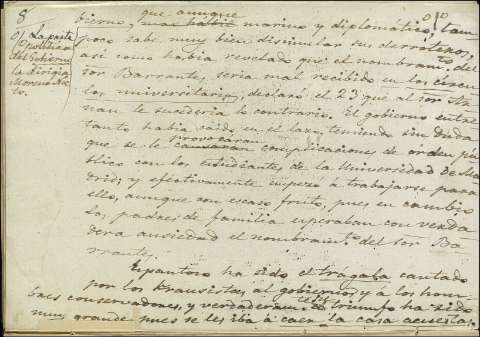 8
que aunque
bierno, mas hábil marino y diplomático, tam
poco sabe muy bien disimular sus derroteros,
así como habia revelado que el nombram.to del
sor Barrantes, seria mal recibido en los circu
los universitarios, declaró el 23 que al sor
nan le sucederia lo contrario. El gobierno entre
tanto habia caido en el lazo, temiendo sin duda
provocaran
que se le causaran complicaciones de orden pú
blico con los estudiantes de la Universidad de Ma
drid; y efectivamente empezó á trabajarse para
ello, aunque con escaso fruto, pues en cambio
los padres de familia esperaban con verda
dera ansiedad el nombram.to del sor Ba
rrantes.
Espantoso ha sido el trágala cantado
por los Krausistas al gobierno y á los hom
bres conservadores, y verdaderam.te el triunfo ha sido
muy grande pues se les iba á caer la casa acuestas.
La parte
política
del Gobierno
la dirigia
Moreno Nie
to.